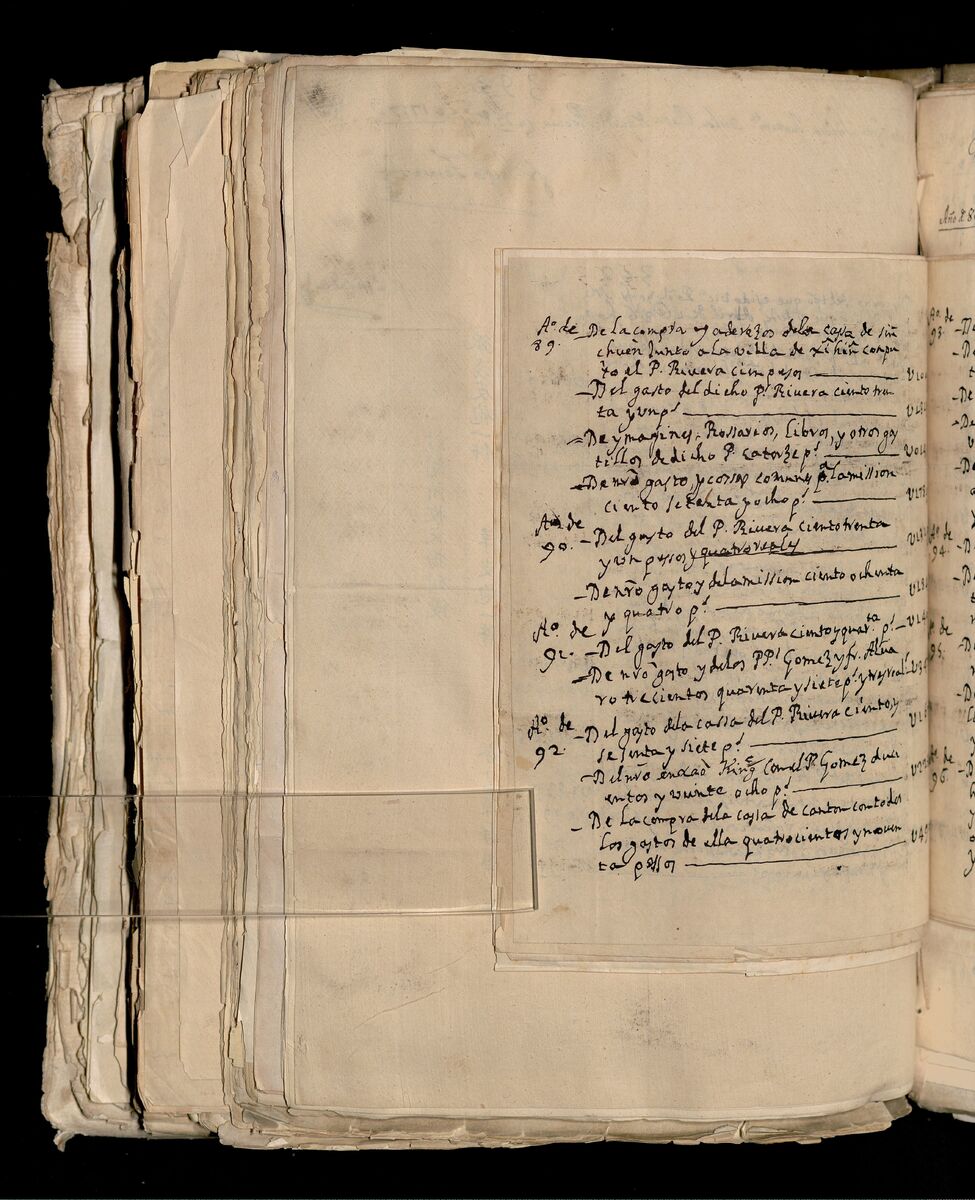 A.º de
89.
– De la compra y aderezos dela casa de siñ
chueñ junto a la villa de xĩ hiñ compu
el P. Rivera cien pesos ——— U10
– Del gasto del dicho P.e Rivera ciento tren
ta y un p.s ———
– De ymagines, Rossarios, Libros, y otros gas
tillos de dicho P. catorze p.s ——— U01
– De nrõ gasto, y cossas comunes p.a la mission
ciento setenta y ocho p.s ——— U178
A.º de
90.
– Del gasto del P. Rivera ciento treinta
y un pessos y quatro reales ——— U13
– De nrõ gasto y dela mission ciento ochenta
y quatro p.s ——— U18
A.º de
91.
– Del gasto del P. Rivera ciento y quar.ta p.s – U14
– De nrõ gasto y delos PP.s Gomez y fr. Alva
ro trecientos quarenta y siete p.s y tres reales – U3
A.º de
92.
– Del gasto dela cassa del P. Rivera ciento y
sesenta y siete p.s ——— U1
– Del nrõ en King con el P. Gomez duci
entos y veinte ocho p.s ——— U22
– De la compra dela cassa de canton con todos
los gastos de ella quatrocientos y noven
ta pessos ——— U4
Año d 8
93.
94.
95.
96.